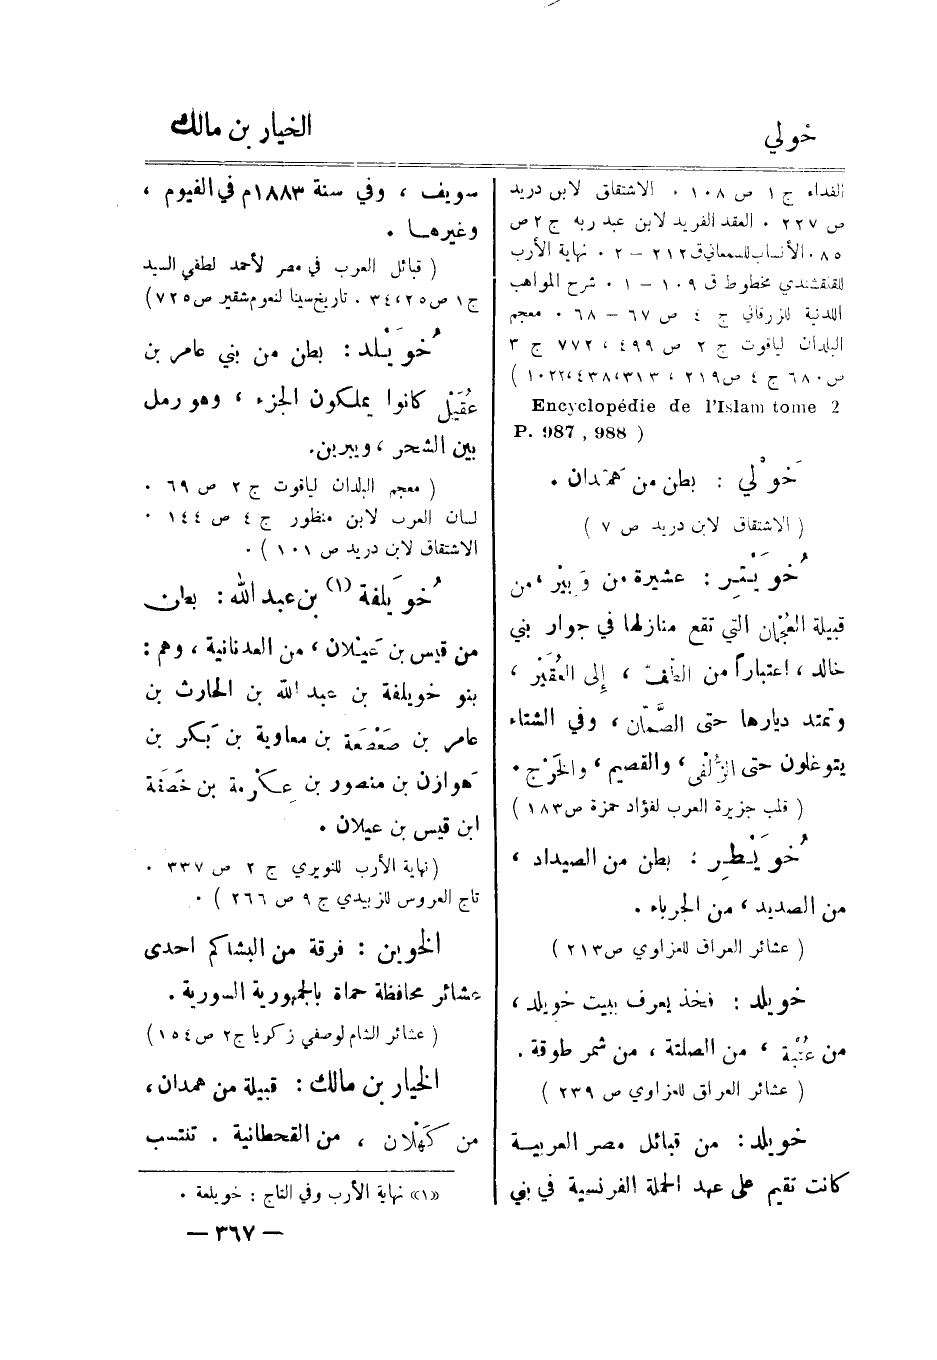 خولي
الخيار بن مالك
الفداء ج ١ ص ١٠٨ . الاشتقاق لابن دريد
ص ٢٢٧ . العقد الفريد لابن عبد ربه ج ٢ ص
٨٥ . الأنساب للسمعاني ق ٢١٢ – ٢ . نهاية الأرب
للقلقشندي مخطوط ق ١٠٩ – ١ . شرح المواهب
اللدنية للزرقاني ج ٤ ص ٦٧ – ٦٨ . معجم
البلدان لياقوت ج ٢ ص ٤٩٩ ، ٧٧٢ ج ٣
ص ٦٨٠ ج ٤ ص ٢١٩ ، ٣١٣ ، ٤٣٨ ، ١٠٢٢ )
Encyclopédie de l'Islam tome 2
P. 987 , 988 )
خَوْلي : بطن من هَمْدان .
( الاشتقاق لابن دريد ص ٧ )
خُوَيْتِر : عشيرة من وَبِيْر ، من
قبيلة العُجْمان التي تقع منازلها في جوار بني
خالد ، اعتباراً من الطَّف ، إلى العُقَيْر ،
وتمتد ديارها حتى الصَّمّان ، وفي الشتاء
يتوغلون حتى الزُّلْفى ، والقصيم ، والخَرْج .
( قلب جزيرة العرب لفؤاد حمزة ص ١٨٣ )
خُوَيْطِر : بطن من الصيداد ،
من الصديد ، من الجرباء .
( عشائر العراق للعزاوي ص ٢١٣ )
خويلد : فخذ يعرف ببيت خويلد ،
من عُتْبَة ، من الصلتة ، من شمر طوقة .
( عشائر العراق للعزاوي ص ٢٣٩ )
خويلد : من قبائل مصر العربية
كانت تقيم على عهد الحملة الفرنسية في بني
سويف ، وفي سنة ١٨٨٣م في الفيوم ،
وغيرهـا .
( قبائل العرب في مصر لأحمد لطفي السيد
ج ١ ص ٢٥ ، ٣٤ . تاريخ سينا لنعوم شقير ص ٧٢٥ )
خُوَيْلد : بطن من بني عامر بن
عُقَيْل كانوا يملكون الجزء ، وهو رمل
بين الشحر ، ويبرين .
( معجم البلدان لياقوت ج ٢ ص ٦٩ .
لسان العرب لابن منظور ج ٤ ص ١٤٤ .
الاشتقاق لابن دريد ص ١٠١ ) .
خُوَيلفة (١) بن عبد الله : بطن
من قيس بن عَيْلان ، من العدنانية ، وهم :
بنو خويلفة بن عبد الله بن الحارث بن
عامر بن صَعْصَعَة بن معاوية بن بَكر بن
هوازن بن منصور بن عِكْرمة بن خَصَفَة
ابن قيس بن عيلان .
( نهاية الأرب للنويري ج ٢ ص ٣٣٧ .
تاج العروس للزبيدي ج ٩ ص ٢٦٦ ) .
الخوين : فرقة من البشاكم احدى
عشائر محافظة حماة بالجمهورية السورية .
( عشائر الشام لوصفي زكريا ج ٢ ص ١٥٤ )
الخيار بن مالك : قبيلة من همدان ،
من كَهْلان ، من القحطانية . تنتسب
«١» نهاية الأرب وفي التاج : خويلعة .
– ٣٦٧ –